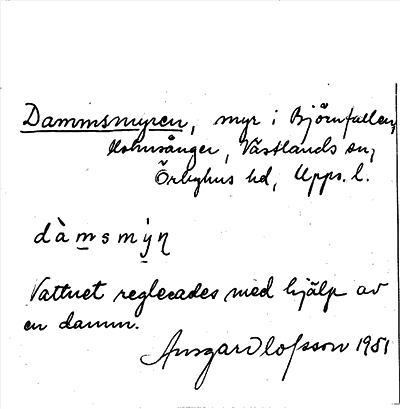 Dammsmyren, myr i Björnfallen,
Holmsånger, Västlands sn,
Örbyhus hd, Upps. l.
dàmsmýn
Vattnet reglerades med hjälp av
en damm.
Ansgar Olofsson 1981